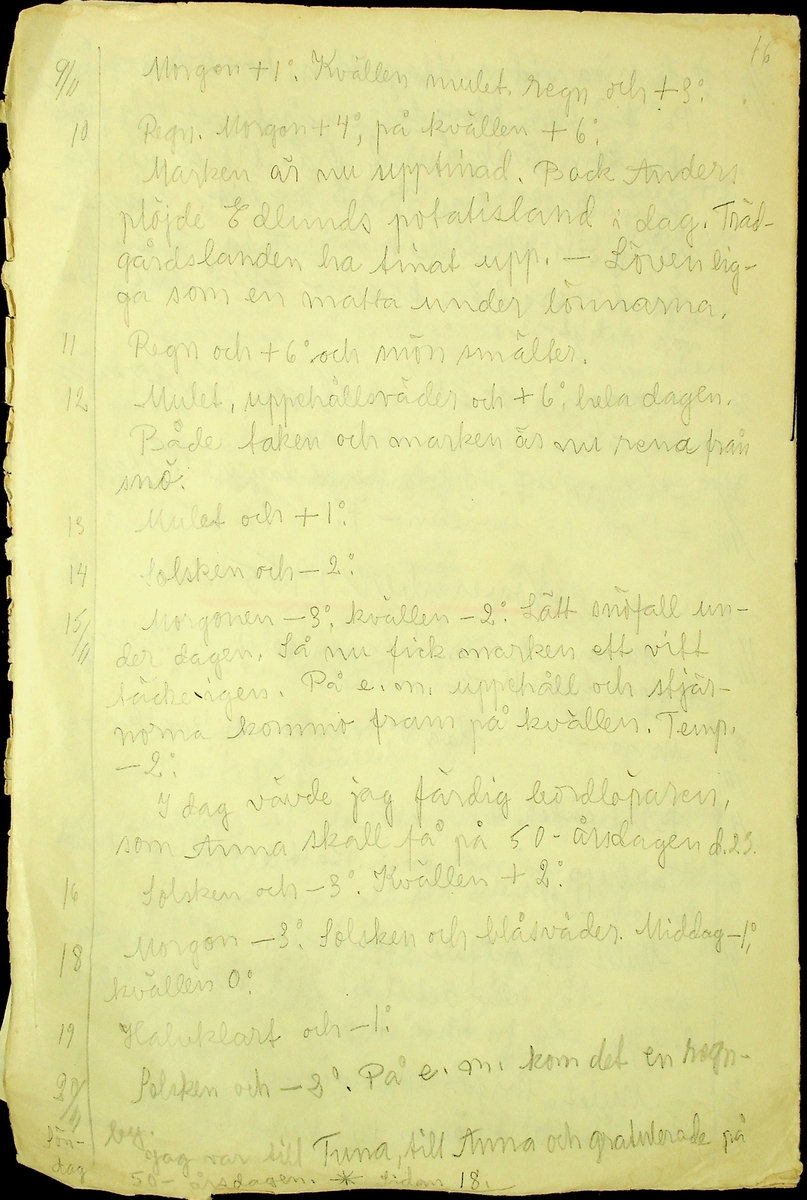 16
9/11 Morgon +1°. Kvällen mulet, regn och +3°.
10 Regn. Morgon +4°, på kvällen +6°.
Marken är nu upptinad. Back Anders
plöjde Edlunds potatisland i dag. Träd-
gårdslanden ha tinat upp. — Löven lig-
ga som en matta under lönnarna.
11 Regn och +6° och snön smälter.
12 Mulet, uppehållsväder och +6°, hela dagen.
Både taken och marken är nu rena från
snö.
13 Mulet och +1°.
14 Solsken och —2°.
15/11 Morgonen —3°, kvällen —2°. Lätt snöfall un-
der dagen. Så nu fick marken ett vitt
täcke igen. På e.m. uppehåll och stjär-
norna kommo fram på kvällen. Temp.
—2°.
I dag vävde jag färdig bordlöparen,
som Anna skall få på 50-årsdagen d. 23.
16 Solsken och —3°. Kvällen +2°.
18 Morgon —3°. Solsken och blåsväder. Middag —1°,
kvällen 0°.
19 Halvklart och —1°.
Solsken och —3°. På e.m. kom det en regn-
by.
Sön-
dag
Jag var till Tuna, till Anna och gratulerade på
50-årsdagen. * sidan 18.